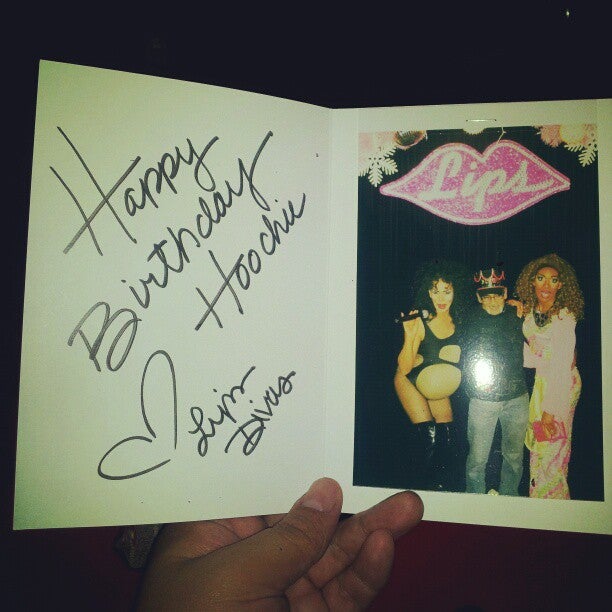 Happy
Birthday
Hoochie
Lips
Divas
Lips